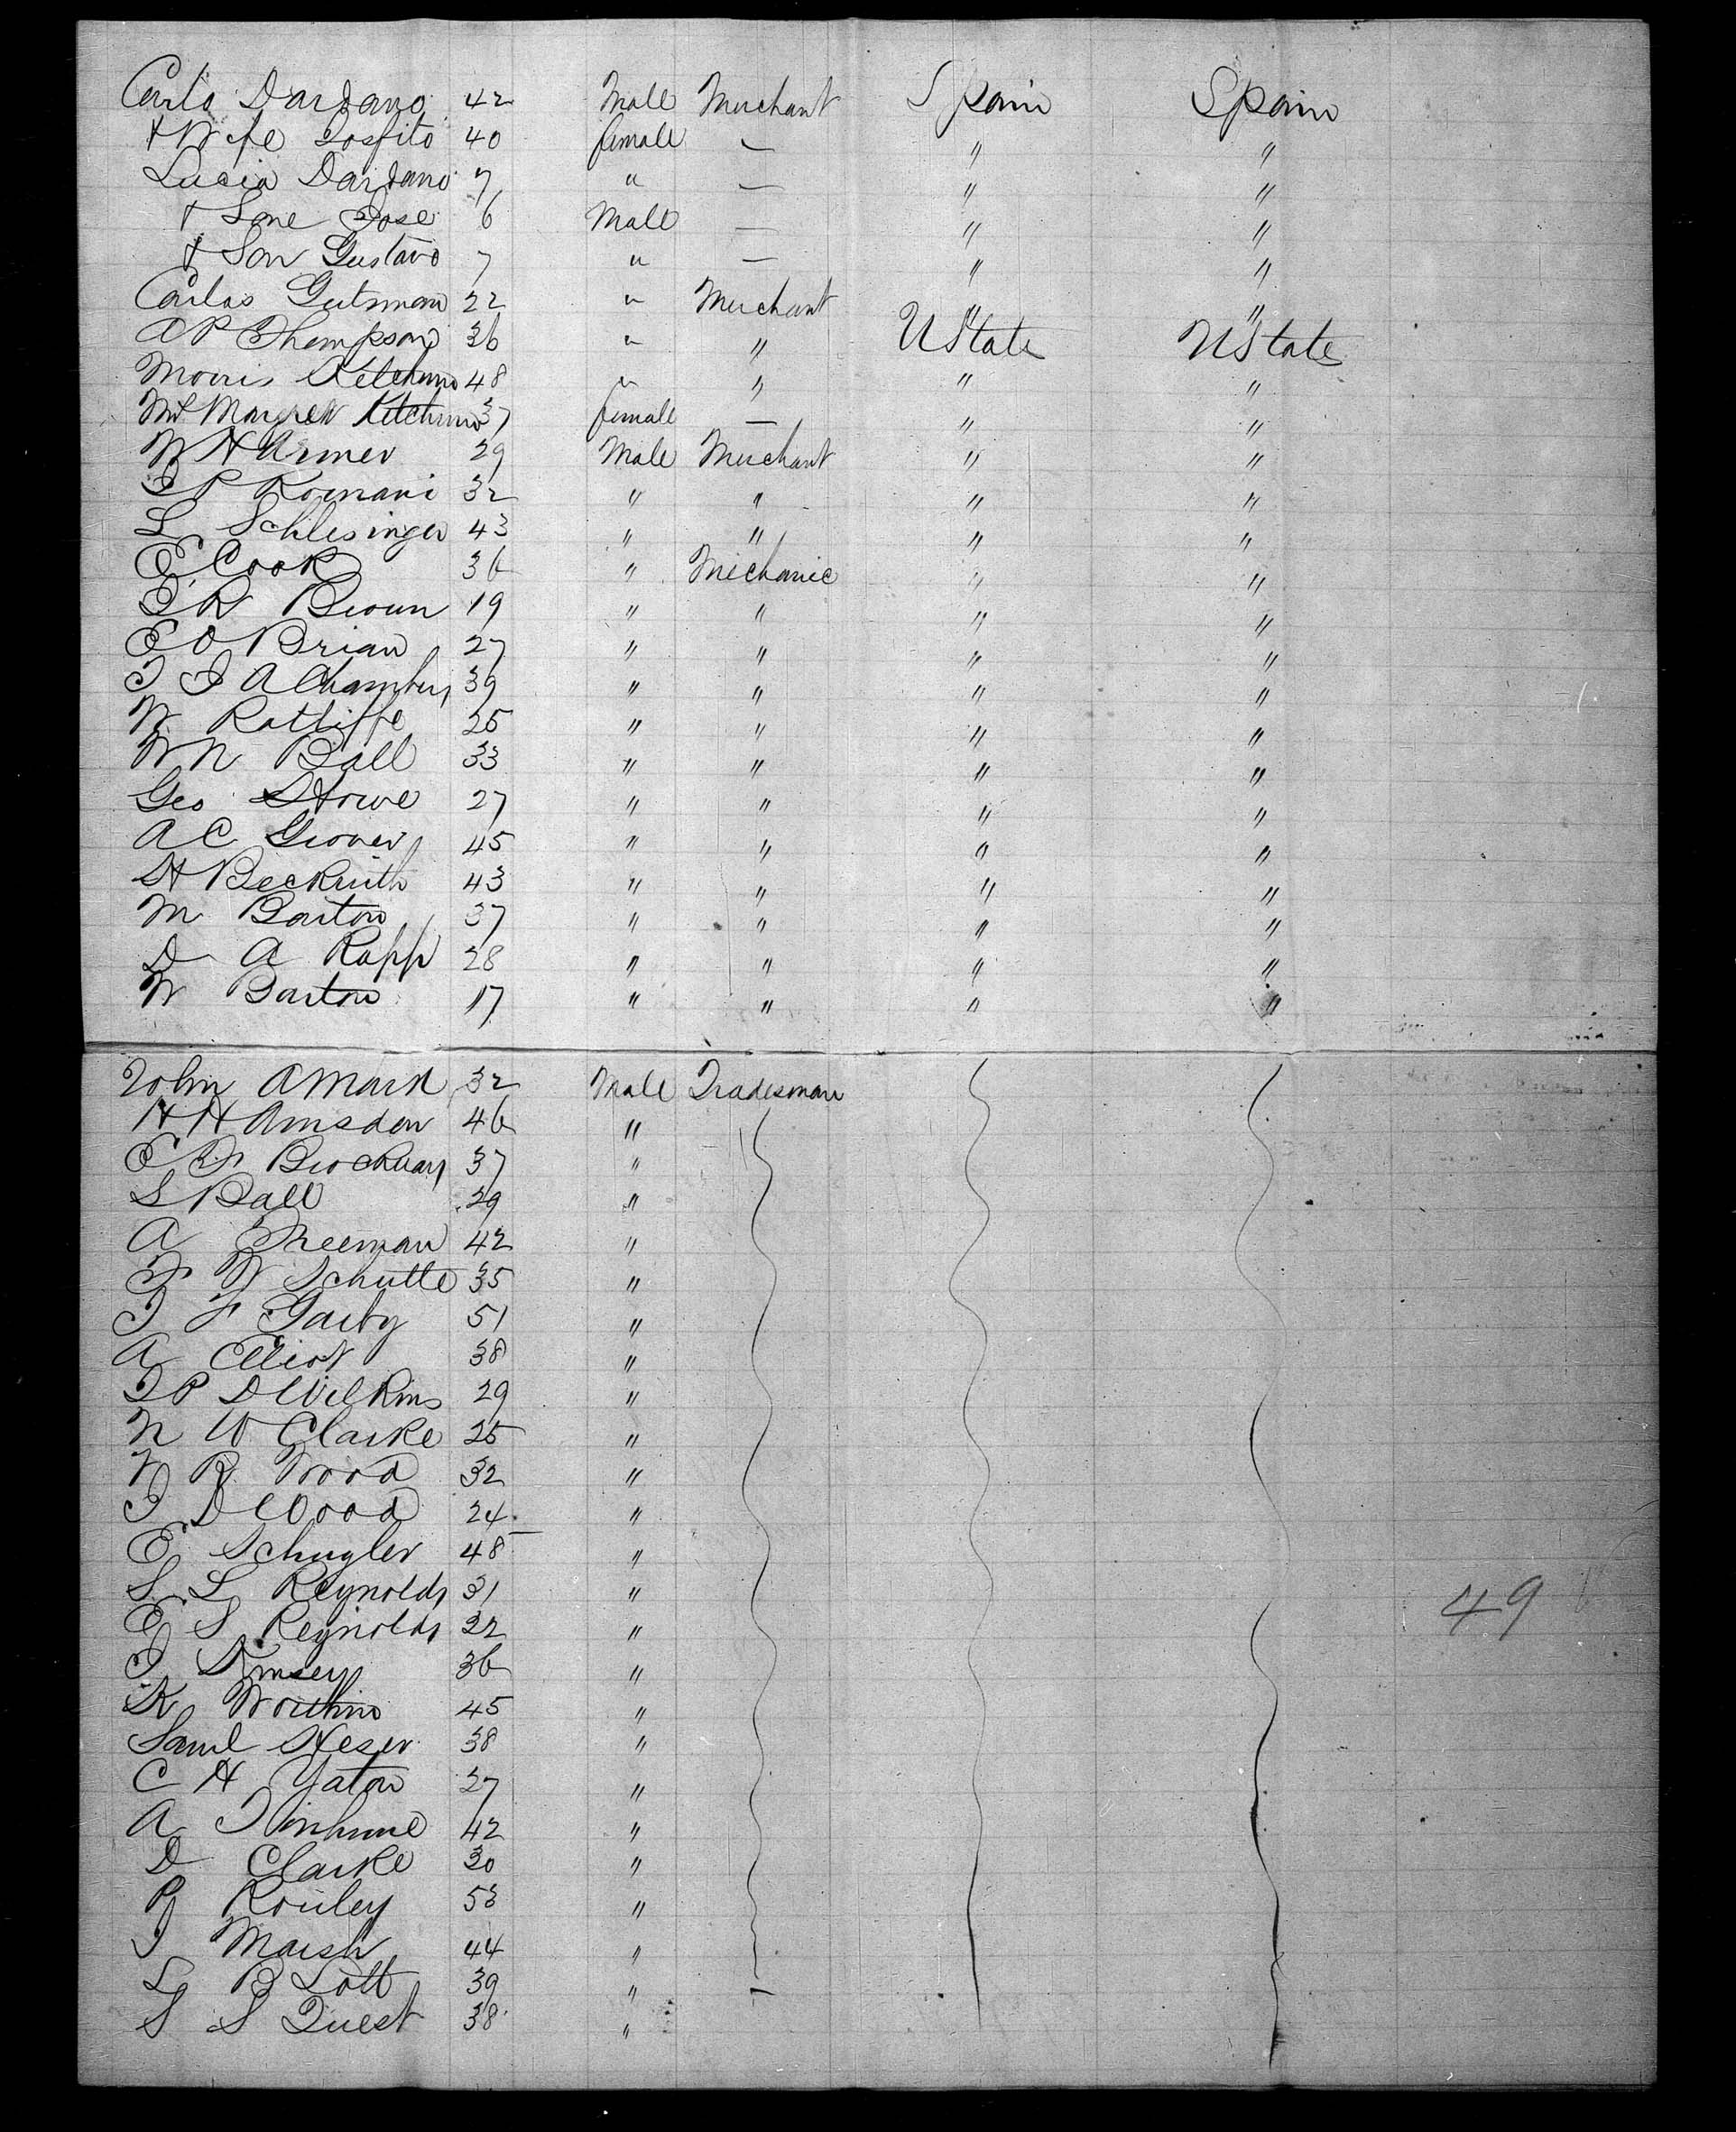 Carlo Dardano 42 Male Merchant Spain Spain
+ Wife Losfito 40 female — " "
Lucia Dardano 7 " — " "
+ Sone Jose 6 Male — " "
+ Son Gustavo 7 " — " "
Carlos Gutsman 22 " Merchant " "
A P Thompson 36 " " UState UState
Morris Ketchum 48 " " " "
Margret Ketchum 37 female — " "
W H Armer 29 Male Merchant " "
P Romani 32 " " " "
L Schlesinger 43 " " " "
E Cook 36 " Mechanic " "
Brown 19 " " " "
E O Brian 27 " " " "
A Chambers 39 " " " "
W Ratliffe 25 " " " "
W N Ball 33 " " " "
Geo Stowe 27 " " " "
A C Grover 45 " " " "
H Beckwith 43 " " " "
M Barton 37 " " " "
D A Rapp 28 " " " "
W Barton 17 " " " "
John A Mark 32 Male Tradesman
H H Amsden 46 "
E Brockway 37 "
S Ball 29 "
A Freeman 42 "
F W Schutte 35 "
51 "
A Elliot 38 "
P D Wilkins 29 "
N W Clarke 25 "
W R Wood 32 "
D Wood 24 "
E Schuyler 48 "
S L Reynolds 31 "
E S Reynolds 32 "
36 "
K 45 "
49
Saml Heser 38 "
C H Yaton 27 "
A 42 "
D Clarke 30 "
Rouley 53 "
Marsh 44 "
L B Lott 39 "
S S Quest 38 "